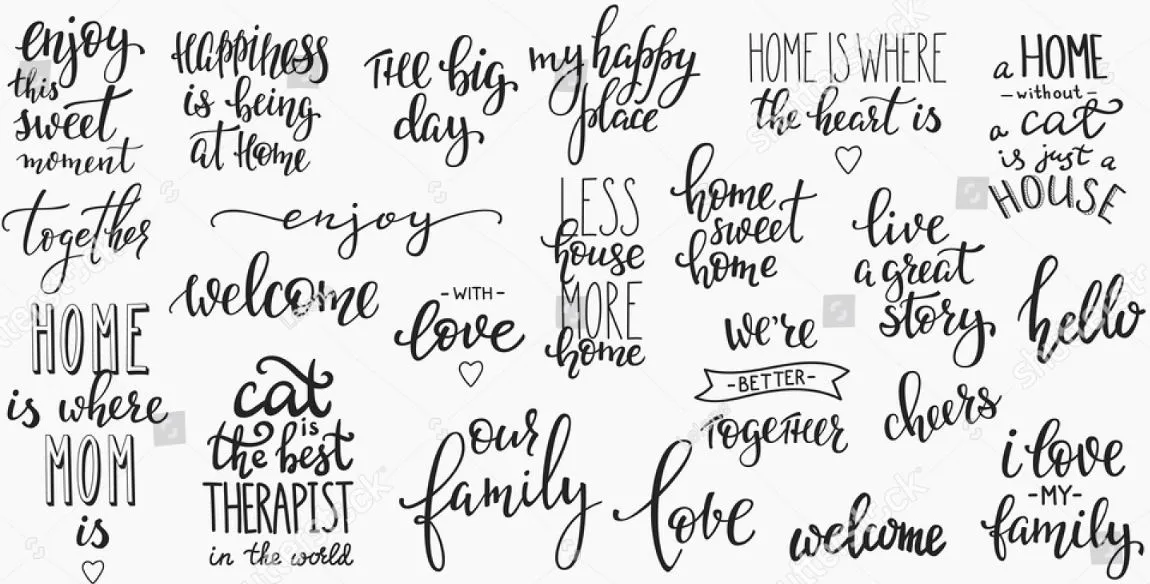 enjoy
this
sweet
moment
HAPPINESS
is being
at Home
THE big
day
my happy
place
HOME IS WHERE
the heart is
a HOME
- without -
a cat
is just a
HOUSE
together
enjoy
LESS
house
MORE
home
home
sweet
home
live
a great
story
welcome
- WITH -
love
hello
HOME
is where
MOM
is
cat
is
the best
THERAPIST
in the world
our
family
we're
- BETTER -
TOGETHER
cheers
love
welcome
i love
- MY -
family
shutterstock